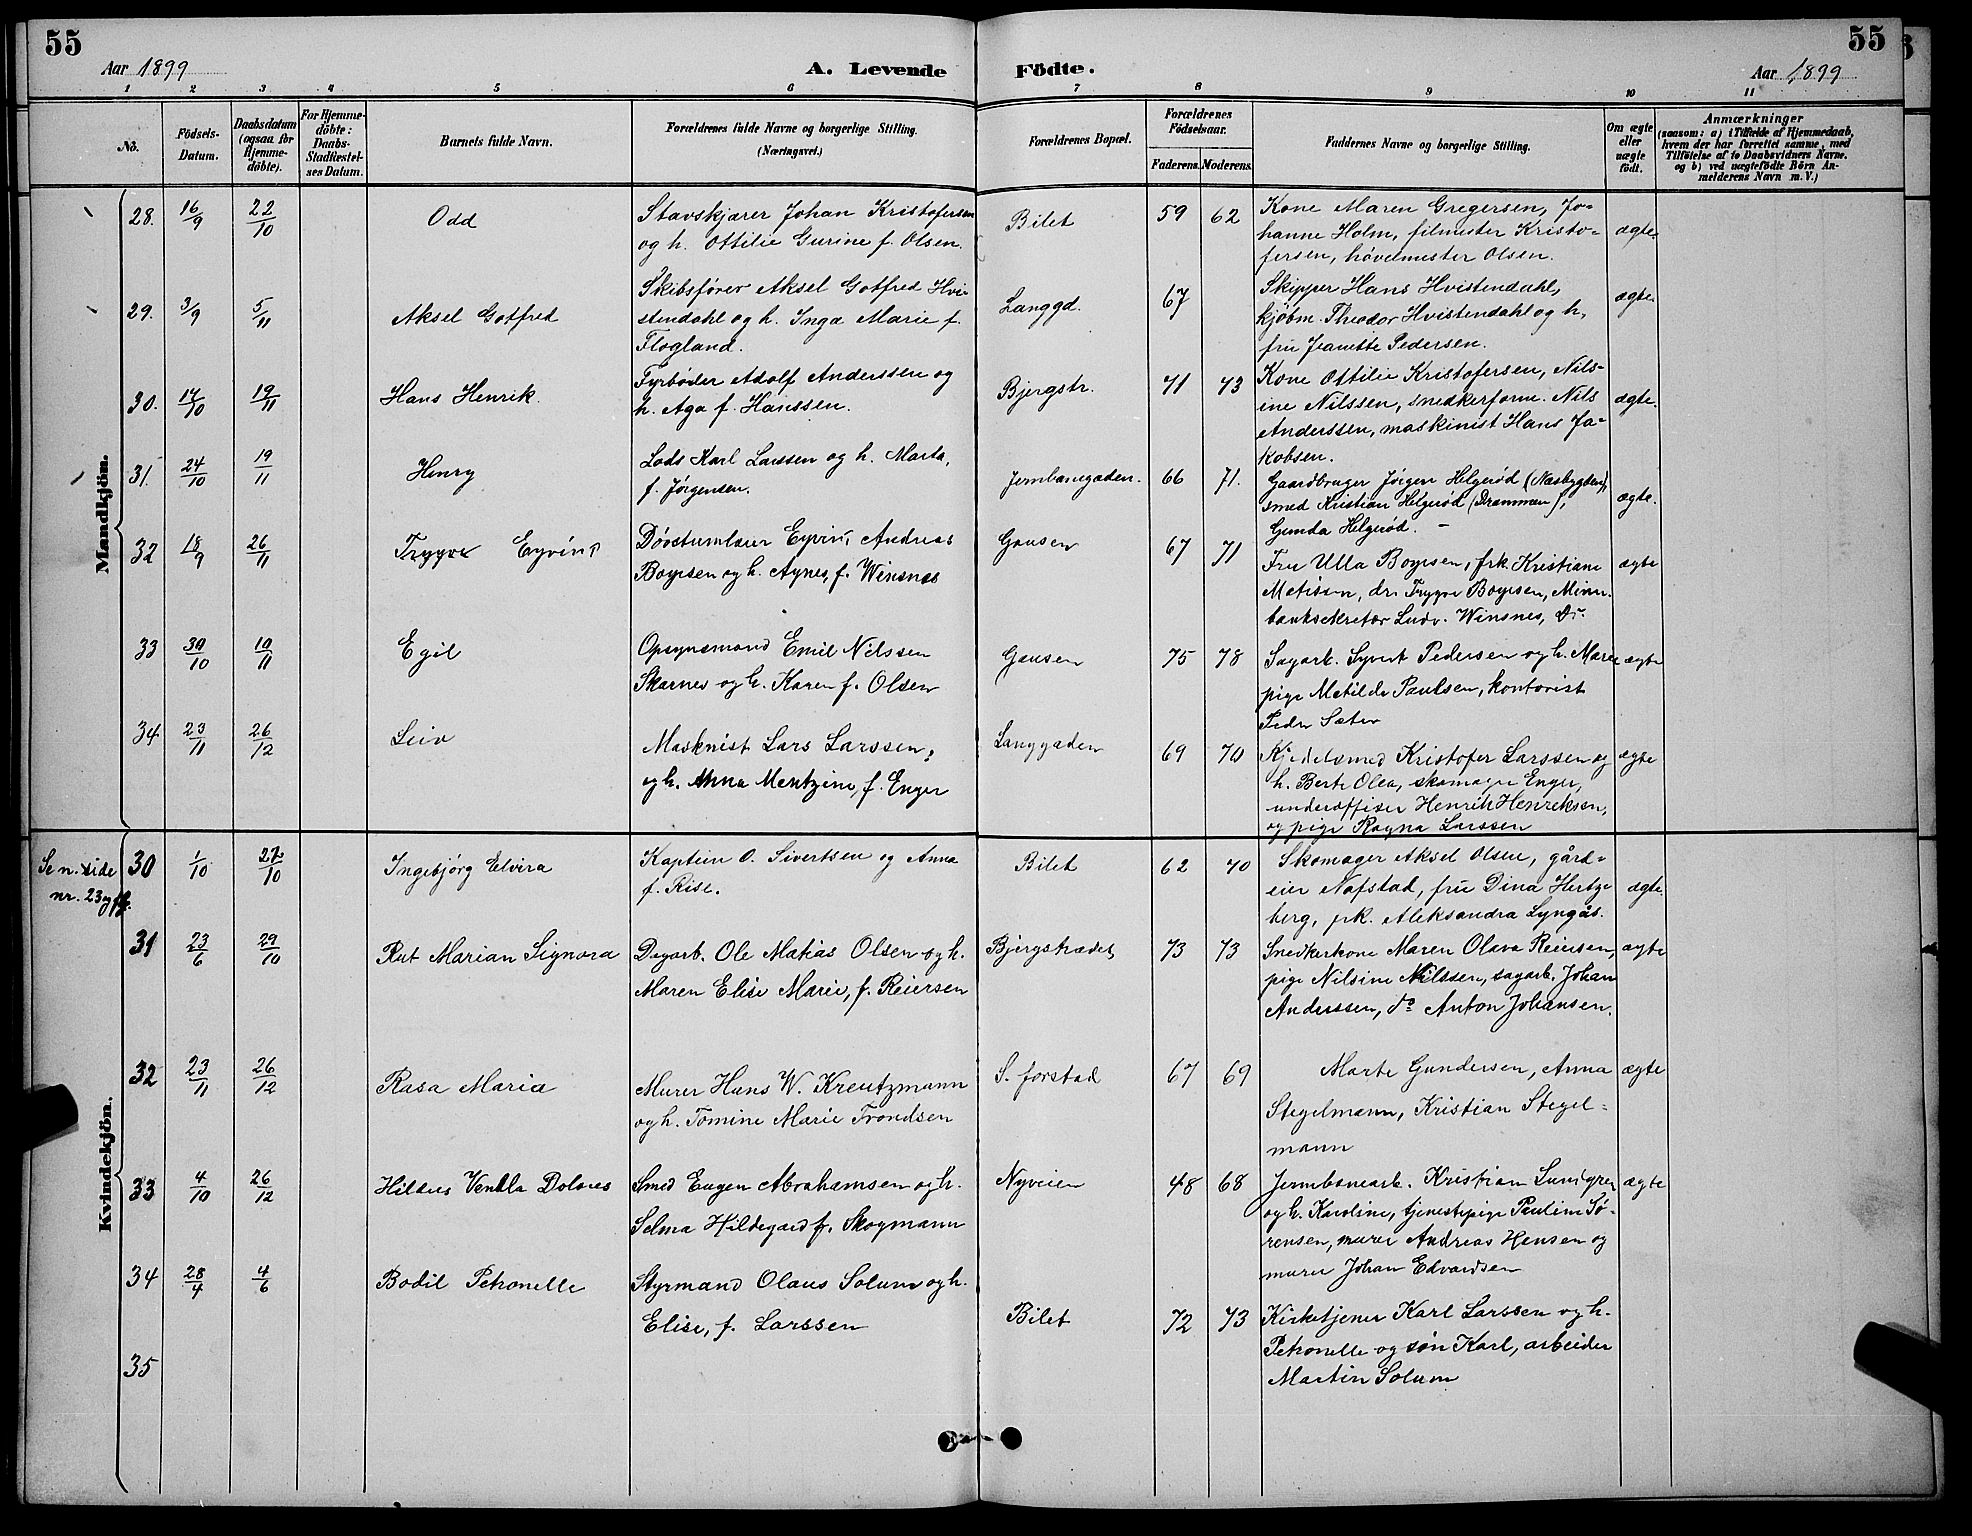 55
Aar 1899
A. Levende Födte.
Aar 1899
55
1 2 3 4 5 6 7 8 9 10 11
No.
Födsels-Datum.
Daabsdatum (ogsaa for Hjemme-döbte).
For Hjemme-döbte: Daabs-Stadfæstel-ses Datum.
Barnets fulde Navn.
Forældrenes fulde Navne og borgerlige Stilling. (Næringsvei.)
Forældrenes Bopæl.
Forældrenes Födselsaar.
Faderens. Moderens.
Faddernes Navne og borgerlige Stilling.
Om ægte eller uægte födt.
Anmærkninger
(saasom: a) i Tilfælde af Hjemmedaab, hvem der har forrettet samme, med Tilföielse af to Daabsvidners Navne, og b) ved uægtefödte Börn An-melderens Navn m. V.)
Mandkjön.
28. 16/9 22/10 Odd
Stavskjærer Johan Kristofersen
og h. Ottilie Gurine f. Olsen.
Bilet 59 62
Kone Maren Gregersen, Jo-
hanne Holm, filmester Kristo-
fersen, hövelmester Olsen.
ægte.
29. 3/9 5/11 Aksel Gotfred
Skibsfører Aksel Gotfred Hvi-
stendahl og h. Inga Marie f.
Flogland.
Langgd. 67
Skipper Hans Hvistendahl,
kjöbm. Theodor Hvistendahl og h,
fru Jeanette Pedersen.
ægte.
30. 17/10 19/11 Hans Henrik.
Fyrbøder Adolf Anderssen og
h. Aga f. Hanssen.
Bjergstr. 71 73
Kone Ottilie Kristofersen, Nils-
ine Nilssen, snedkerform. Nils
Anderssen, maskinist Hans Ja-
kobsen.
ægte.
31. 24/10 19/11 Henry
Lods Karl Larssen og h. Marta,
f. Jørgensen.
Jernbanegaden. 66 71.
Gaardbruger Jörgen Helgeröd (Næsbygden),
smed Kristian Helgeröd (Drammen),
Gunda Helgeröd.
ægte.
32 18/9 26/11 Trygve Eyvind
Døvstumlærer Eyvind Andreas
Boyesen og h. Agnes, f. Winsnes
Gausen 67 71
Fru Ulla Boyesen, frk. Kristiane
Metisen, dr. Trygve Boyesen, Minn.
banksekretær Ludv. Winsnes, Dr.
ægte
33 30/10 10/11 Egil
Opsynsmand Emil Nilssen
Skarnes og h. Karen f. Olsen
Gausen 75 78
Sagarb. Syvert Pedersen og h. Maren
pige Metilde Paulsen, kontorist
Peder Sæter
ægte
34 23/11 26/12 Leiv
Masknist Lars Larssen,
og h. Anna Mentzine, f. Enger
Langgaden 69 70
Kjedelsmed Kristofer Larssen og
h. Berte Olea, skomager Enger,
underoffiser Henrik Henriksen,
og pige Ragna Larssen
ægte
Kvindekjön.
Se n. side
nr. 23 gff.
30 1/10 22/10 Ingebjörg Elvira
Kaptein O. Sivertsen og Anna
f. Rise.
Bilet 62 70
Skomager Aksel Olsen, gård-
eier Nafstad, fru Dina Hertz-
berg, frk. Aleksandra Lyngås.
ægte.
31 23/6 29/10 Rut Marian Signora
Dagarb. Ole Matias Olsen og h.
Maren Elise Marie, f. Reiersen
Bjergstrædet 73 73
Snedkerkone Maren Olava Reiersen,
pige Nilsine Nilssen, sagarb. Johan
Anderssen, do Anton Johansen.
ægte
32 23/11 26/12 Rasa Maria
Murer Hans W. Kreutzmann
og h. Tomine Marie Trondsen
S. forstad 67 69
Marte Gundersen, Anna
Stegelmann, Kristian Stegel-
mann
ægte
33 4/10 26/12 Hildus Vendla Dolores
Smed Eugen Abrahamsen og h.
Selma Hildegard f. Skogmann
Nyveien 48 68
Jernbanearb. Kristian Lundgren
og h. Karoline, tjenestepige Pauline Sö-
rensen, murer Andreas Hensen og
murer Johan Edvardsen
ægte
34 28/4 4/6 Bodil Petronelle
Styrmand Olaus Solum og h.
Elise, f. Larssen
Bilet 72 73
Kirketjener Karl Larssen og h.
Petronelle og sön Karl, arbeider
Martin Solum
35